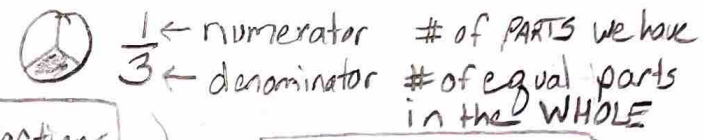 1 ← numerator # of PARTS we have
3 ← denominator # of equal parts
in the WHOLE